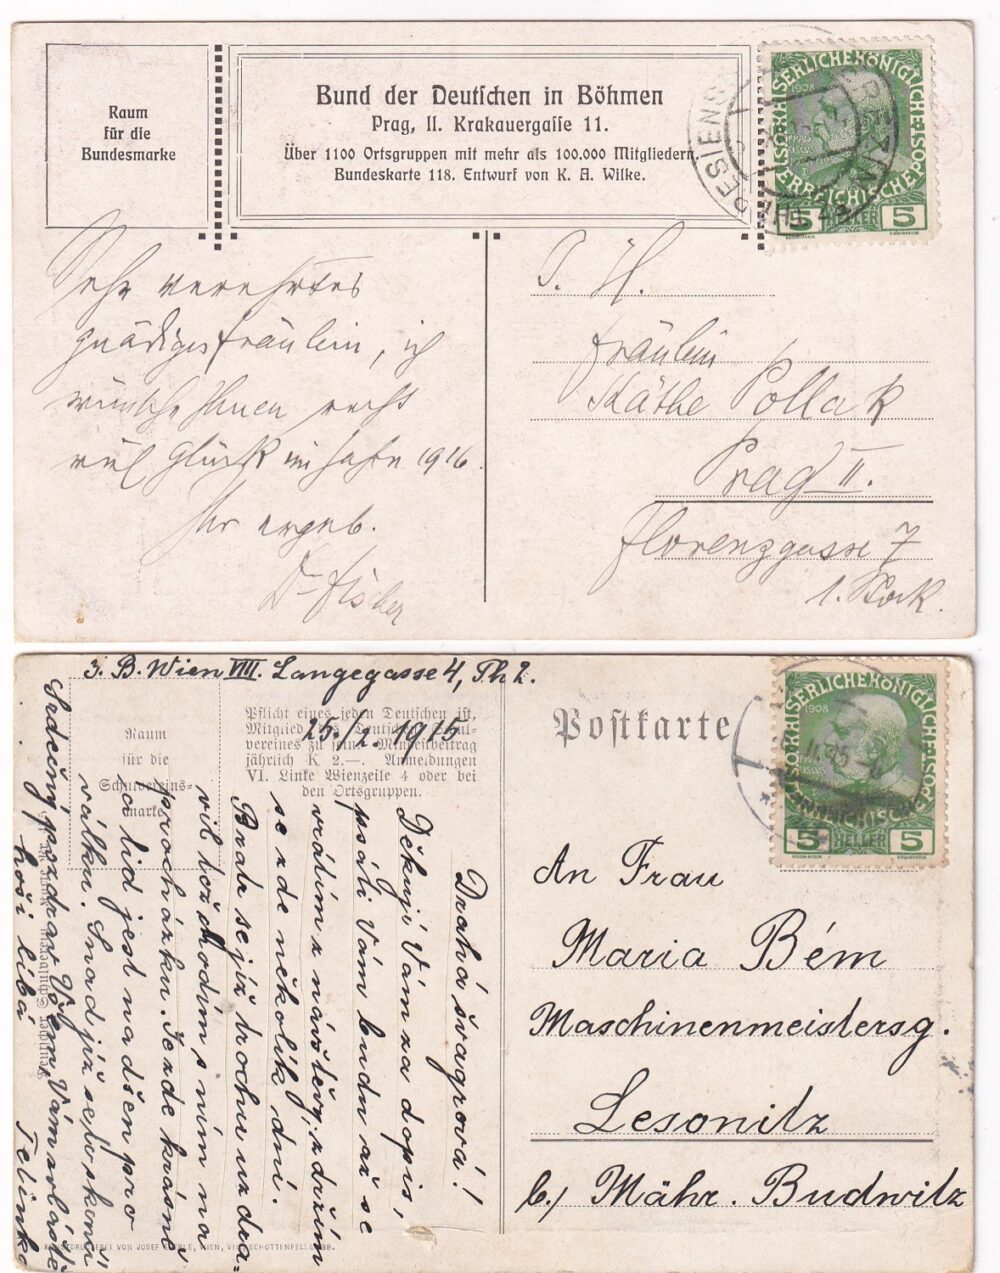 Raum
für die
Bundesmarke
Bund der Deutschen in Böhmen
Prag, II. Krakauergasse 11.
Über 1100 Ortsgruppen mit mehr als 100.000 Mitgliedern.
Bundeskarte 118. Entwurf von K. A. Wilke.
KAISERLICHEKÖNIGLICHE
ÖSTERREICHISCHE POST
1908
5 HELLER 5
Sehr verehrtes
gnädiges Fräulein, ich
wünsche Ihnen recht
viel Glück im Jahre 1916.
Ihr ergeb.
Dr Fischer
P. H.
Fräulein
Käthe Pollak
Prag II.
Florenzgasse 7
1. Stock.
z. B. Wien VIII. Langegasse 4, Th 2.
25./2. 1915
Raum
für die
Schulvereins-
marke
Pflicht eines jeden Deutschen ist,
Mitglied des Deutschen Schul-
vereines zu sein. Mindestbeitrag
jährlich K 2.—. Anmeldungen
VI. Linke Wienzeile 4 oder bei
den Ortsgruppen.
Postkarte
KAISERLICHEKÖNIGLICHE
ÖSTERREICHISCHE POST
1908
5 HELLER 5
Drahá švagrová!
Děkuji Vám za dopis,
psáti Vám budu až se
vrátím z návštěvy, zdržím
se zde několik dní.
Brada se již trochu uzdra-
vil tož chodím s ním na
procházku. Je zde krásně
a lid jest nadšen pro
válku. Snad již se pokoná
Srdečný pozdrav Všem Vám zvláště
hoši líbá Telinka
An Frau
Maria Bém
Maschinenmeistersg.
Lesonitz
b./ Mähr. Budwitz
KUNSTDRUCKEREI VON JOSEF EBERLE, WIEN, VII. SCHOTTENFELDG. 38.